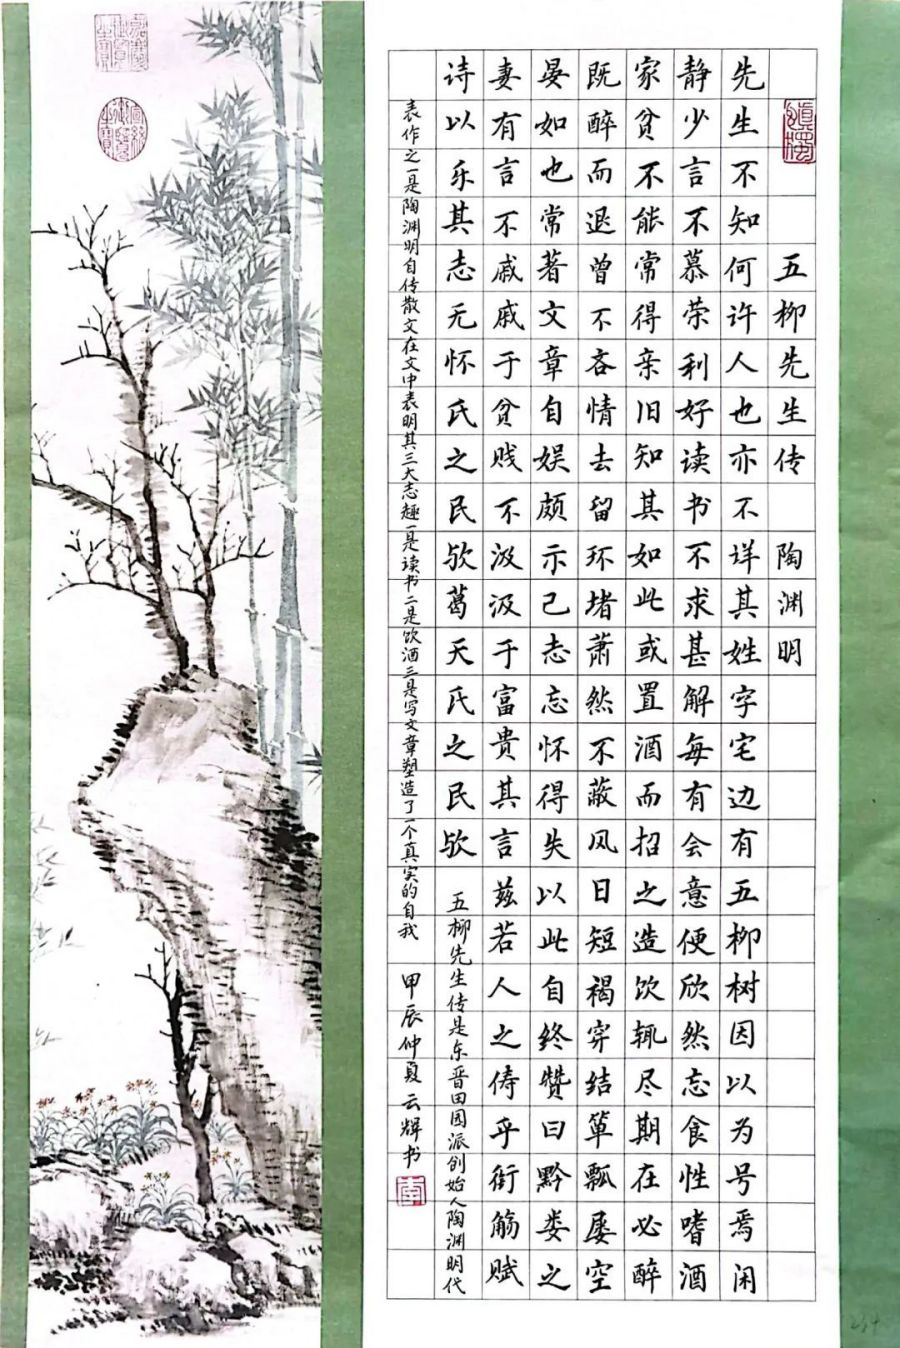 五柳先生传 陶渊明
先生不知何许人也亦不详其姓字宅边有五柳树因以为号焉闲
静少言不慕荣利好读书不求甚解每有会意便欣然忘食性嗜酒
家贫不能常得亲旧知其如此或置酒而招之造饮辄尽期在必醉
既醉而退曾不吝情去留环堵萧然不蔽风日短褐穿结箪瓢屡空
晏如也常著文章自娱颇示己志忘怀得失以此自终赞曰黔娄之
妻有言不戚戚于贫贱不汲汲于富贵其言兹若人之俦乎衔觞赋
诗以乐其志无怀氏之民欤葛天氏之民欤 五柳先生传是东晋田园派创始人陶渊明代
表作之一是陶渊明自传散文在文中表明其三大志趣一是读书二是饮酒三是写文章塑造了一个真实的自我 甲辰仲夏云辉书
嘉慶御覽之寶
宣統御覽之寶